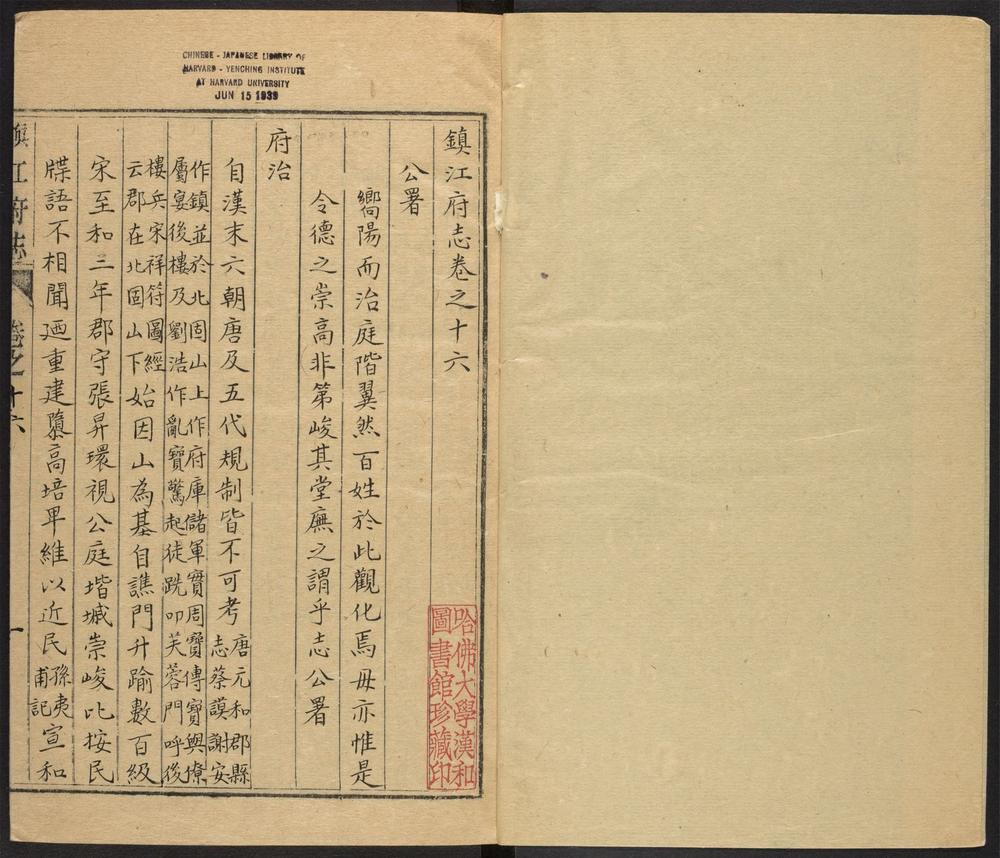 CHINESE - JAPANESE LIBRARY OF
HARVARD - YENCHING INSTITUTE
AT HARVARD UNIVERSITY
JUN 15 1939
鎮江府志卷之十六
公署
嚮陽而治庭階翼然百姓於此觀化焉毋亦惟是
令德之崇高非第峻其堂廡之謂乎志公署
府治
自漢末六朝唐及五代規制皆不可考唐元和郡縣
志蔡謨謝安
作鎮並於北固山上作府庫儲軍實周寶傳寶與僚
屬宴後樓及劉浩作亂寶驚起徒跣叩芙蓉門呼後
樓兵宋祥符圖經
云郡在北固山下始因山為基自譙門升踰數百級
宋至和三年郡守張昇環視公庭堦墄崇峻比按民
牒語不相聞廼重建隳高培卑維以近民孫夷
甫記宣和
鎮江府志
卷之十六
一
哈佛大學漢和
圖書館珍藏印